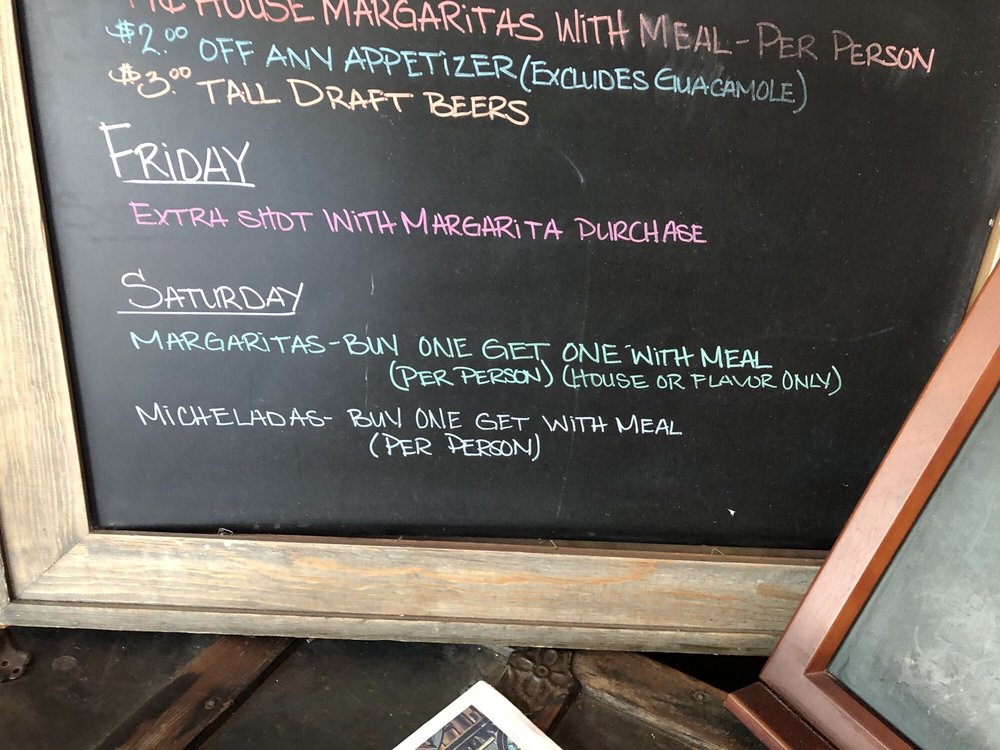 HOUSE MARGARITAS WITH MEAL - PER PERSON
$2.00 OFF ANY APPETIZER (EXCLUDES GUACAMOLE)
$3.00 TALL DRAFT BEERS
FRIDAY
EXTRA SHOT WITH MARGARITA PURCHASE
SATURDAY
MARGARITAS - BUY ONE GET ONE WITH MEAL
(PER PERSON) (HOUSE OR FLAVOR ONLY)
MICHELADAS - BUY ONE GET WITH MEAL
(PER PERSON)